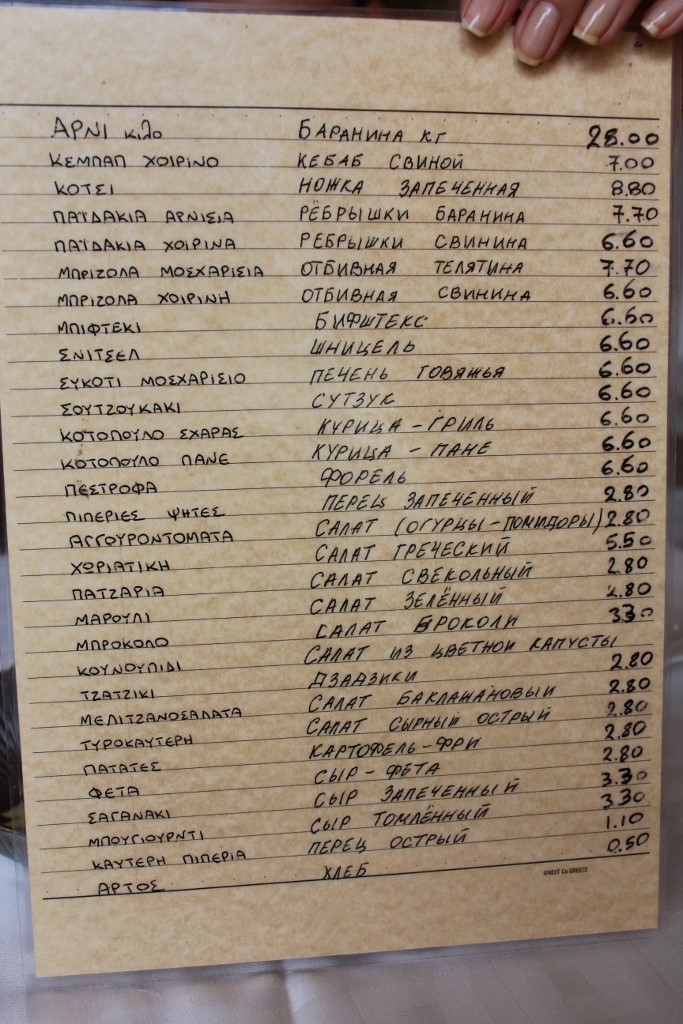 ΑΡΝΙ κιλο БАРАНИНА КГ 28.00
ΚΕΜΠΑΠ ΧΟΙΡΙΝΟ КЕБАБ СВИНОЙ 7.00
ΚΟΤΣΙ НОЖКА ЗАПЕЧЕННАЯ 8.80
ΠΑΪΔΑΚΙΑ ΑΡΝΙΣΙΑ РЁБРЫШКИ БАРАНИНА 7.70
ΠΑΪΔΑΚΙΑ ΧΟΙΡΙΝΑ РЕБРЫШКИ СВИНИНА 6.60
ΜΠΡΙΖΟΛΑ ΜΟΣΧΑΡΙΣΙΑ ОТБИВНАЯ ТЕЛЯТИНА 7.70
ΜΠΡΙΖΟΛΑ ΧΟΙΡΙΝΗ ОТБИВНАЯ СВИНИНА 6.60
ΜΠΙΦΤΕΚΙ БИФШТЕКС 6.60
ΣΝΙΤΣΕΛ ШНИЦЕЛЬ 6.60
ΣΥΚΟΤΙ ΜΟΣΧΑΡΙΣΙΟ ПЕЧЕНЬ ГОВЯЖЬЯ 6.60
ΣΟΥΤΖΟΥΚΑΚΙ СУТЗУК 6.60
ΚΟΤΟΠΟΥΛΟ ΣΧΑΡΑΣ КУРИЦА - ГРИЛЬ 6.60
ΚΟΤΟΠΟΥΛΟ ΠΑΝΕ КУРИЦА - ПАНЕ 6.60
ΠΕΣΤΡΟΦΑ ФОРЕЛЬ 6.60
ΠΙΠΕΡΙΕΣ ΨΗΤΕΣ ПЕРЕЦ ЗАПЕЧЕННЫЙ 2.80
ΑΓΓΟΥΡΟΝΤΟΜΑΤΑ САЛАТ (ОГУРЦЫ-ПОМИДОРЫ) 2.80
ΧΩΡΙΑΤΙΚΗ САЛАТ ГРЕЧЕСКИЙ 5.50
ΠΑΤΖΑΡΙΑ САЛАТ СВЕКОЛЬНЫЙ 2.80
ΜΑΡΟΥΛΙ САЛАТ ЗЕЛЁННЫЙ 2.80
ΜΠΡΟΚΟΛΟ САЛАТ БРОКОЛИ 3.30
ΚΟΥΝΟΥΠΙΔΙ САЛАТ ИЗ ЦВЕТНОЙ КАПУСТЫ
ΤΖΑΤΖΙΚΙ ДЗАДЗИКИ 2.80
ΜΕΛΙΤΖΑΝΟΣΑΛΑΤΑ САЛАТ БАКЛАЖАНОВЫЙ 2.80
ΤΥΡΟΚΑΥΤΕΡΗ САЛАТ СЫРНЫЙ ОСТРЫЙ 2.80
ΠΑΤΑΤΕΣ КАРТОФЕЛЬ-ФРИ 2.80
ΦΕΤΑ СЫР - ФЕТА 2.80
ΣΑΓΑΝΑΚΙ СЫР ЗАПЕЧЕННЫЙ 3.30
ΜΠΟΥΓΙΟΥΡΝΤΙ СЫР ТОМЛЁННЫЙ 3.30
ΚΑΥΤΕΡΗ ΠΙΠΕΡΙΑ ПЕРЕЦ ОСТРЫЙ 1.10
ΑΡΤΟΣ ХЛЕБ 0.50
©NEXT Co GREECE